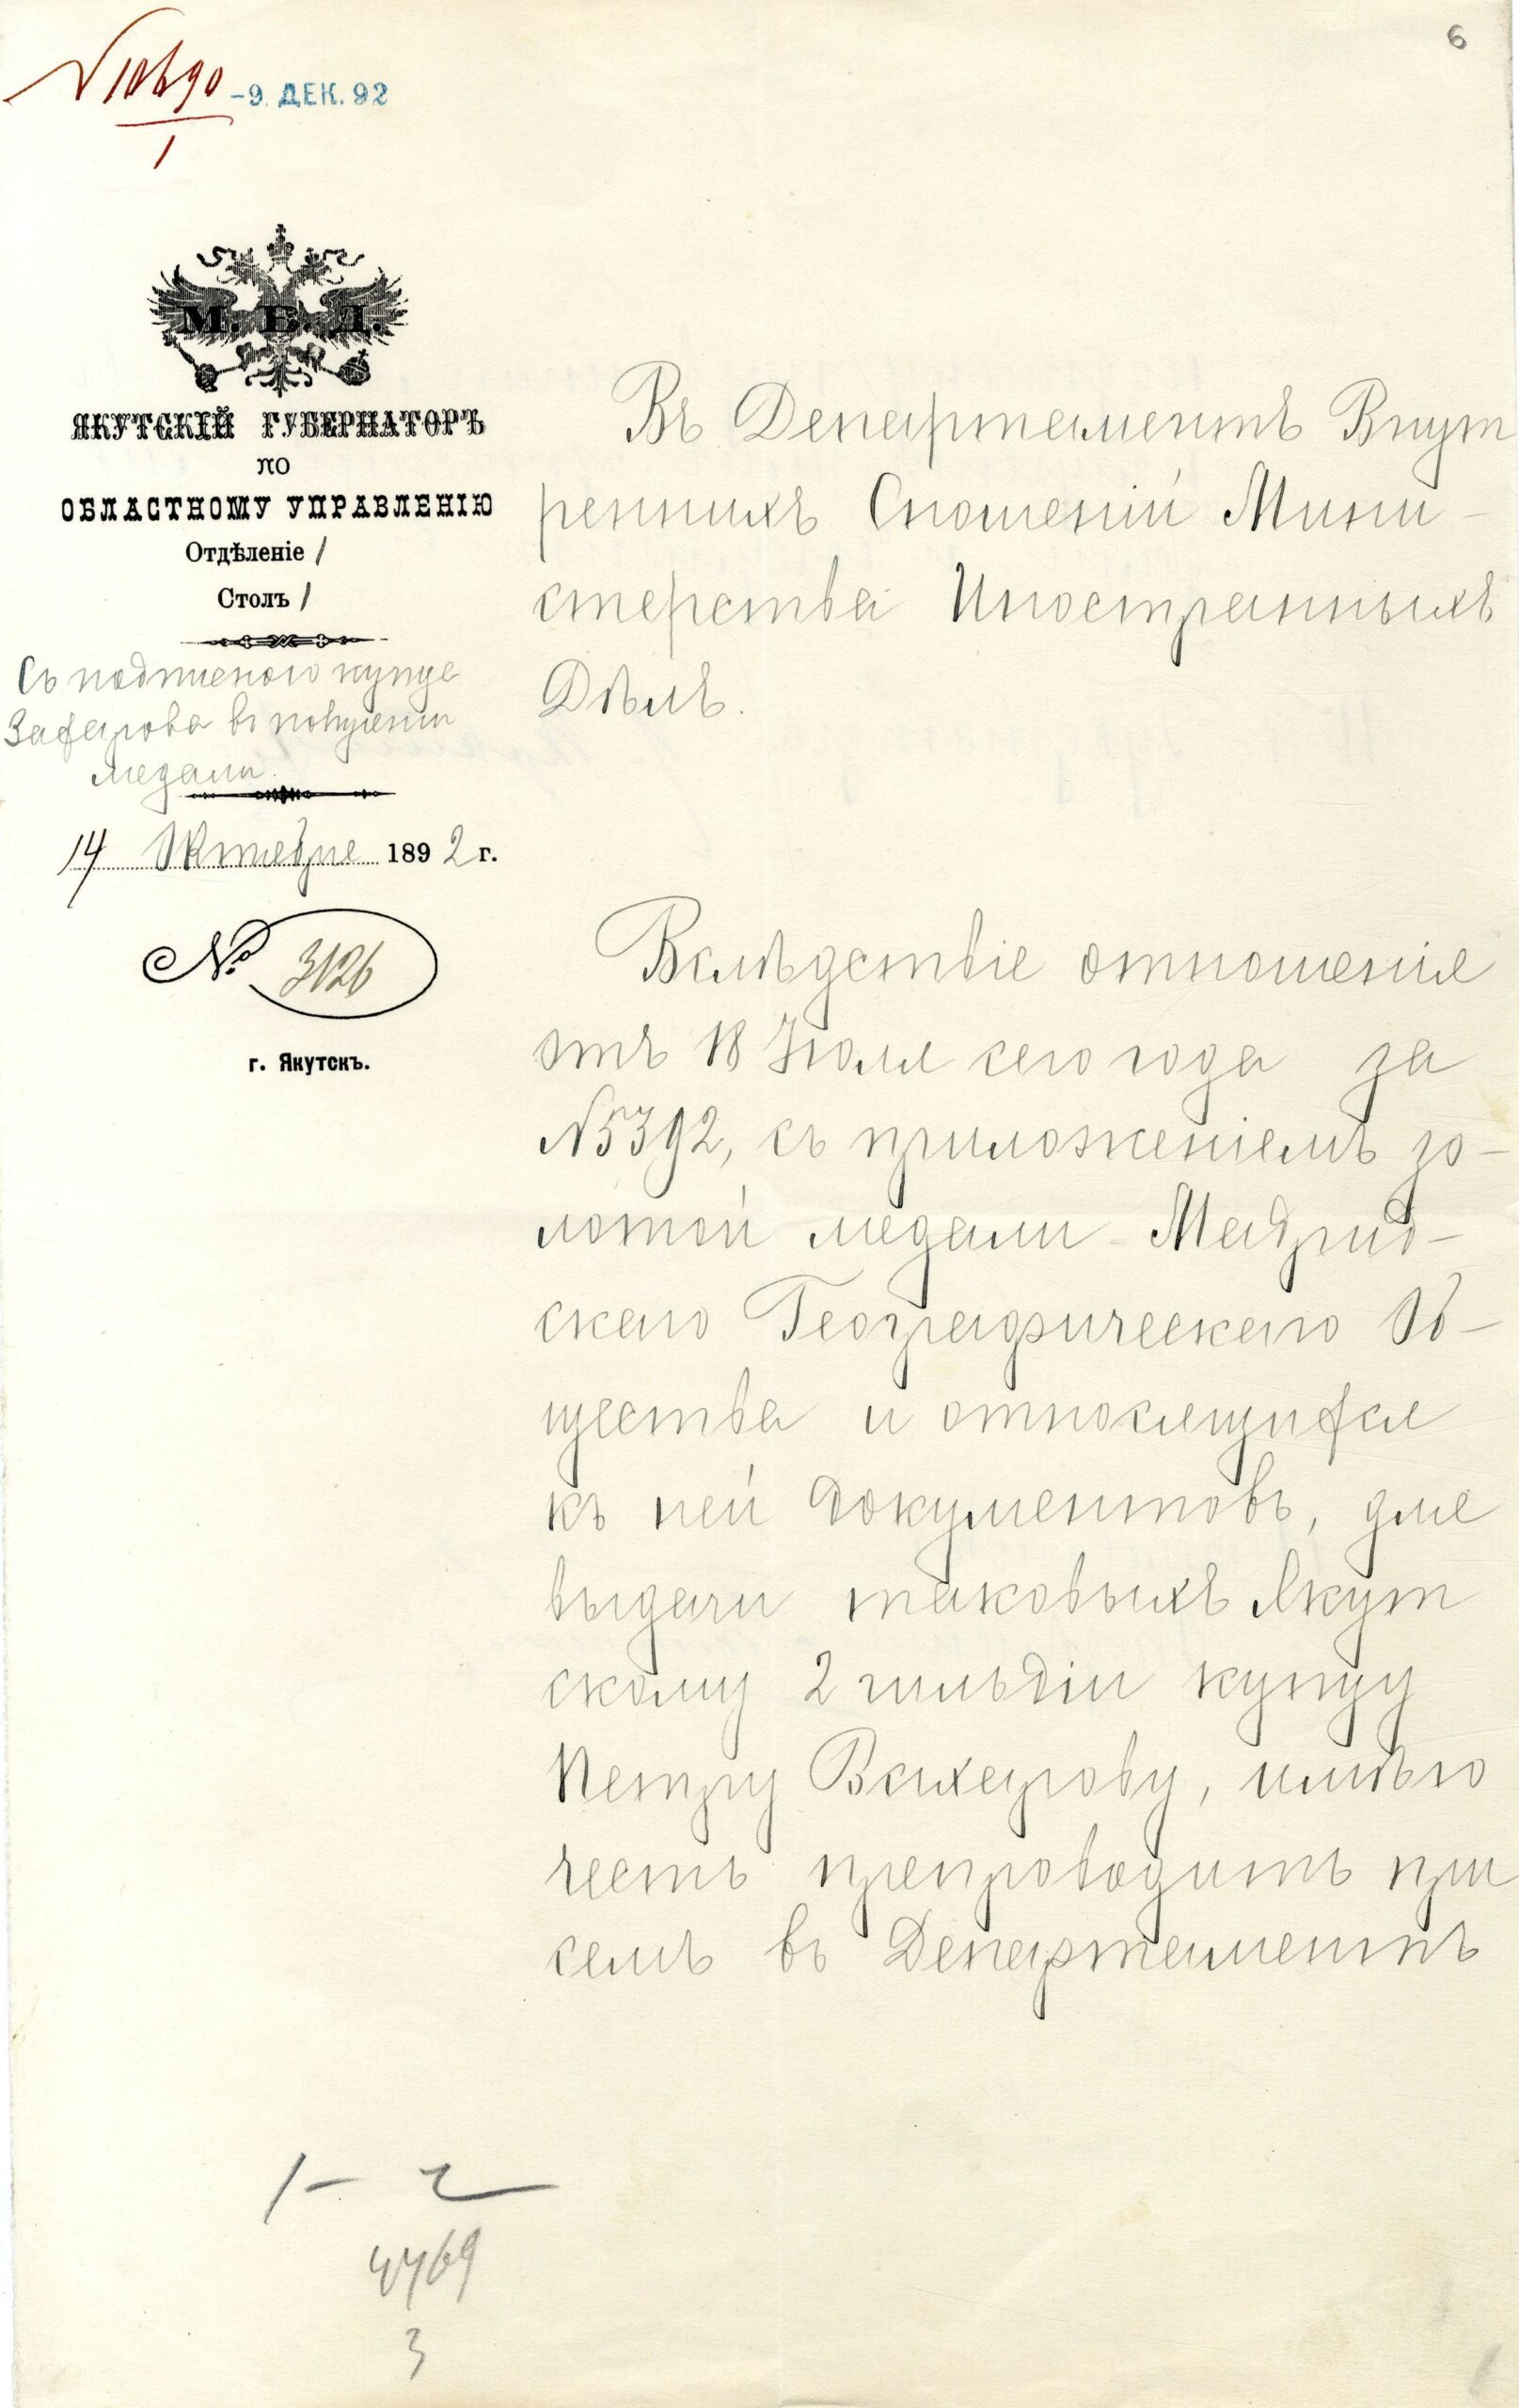 6
№ 10690
1
-9. ДЕК. 92
М. В. Д.
ЯКУТСКІЙ ГУБЕРНАТОРЪ
ПО
ОБЛАСТНОМУ УПРАВЛЕНІЮ
Отдѣленіе 1
Столъ 1
Съ подпискою купца
въ получении
медали.
14 Октября 1892 г.
№ 3126
г. Якутскъ.
Въ Департаментъ Внут
реннихъ Сношеній Мини-
стерства Иностранныхъ
Дѣлъ.
Вслѣдствіе отношенія
отъ 18 Іюля сего года за
№ 5392, съ приложеніемъ зо-
лотой медали Мадрид-
скаго Географическаго Об-
щества и относящихся
къ ней документовъ, для
выдачи таковыхъ Якут
скому 2 гильдіи купцу
Петру Захарову, имѣю
честь препроводить при
семъ въ Департаментъ
1-2
4769
3